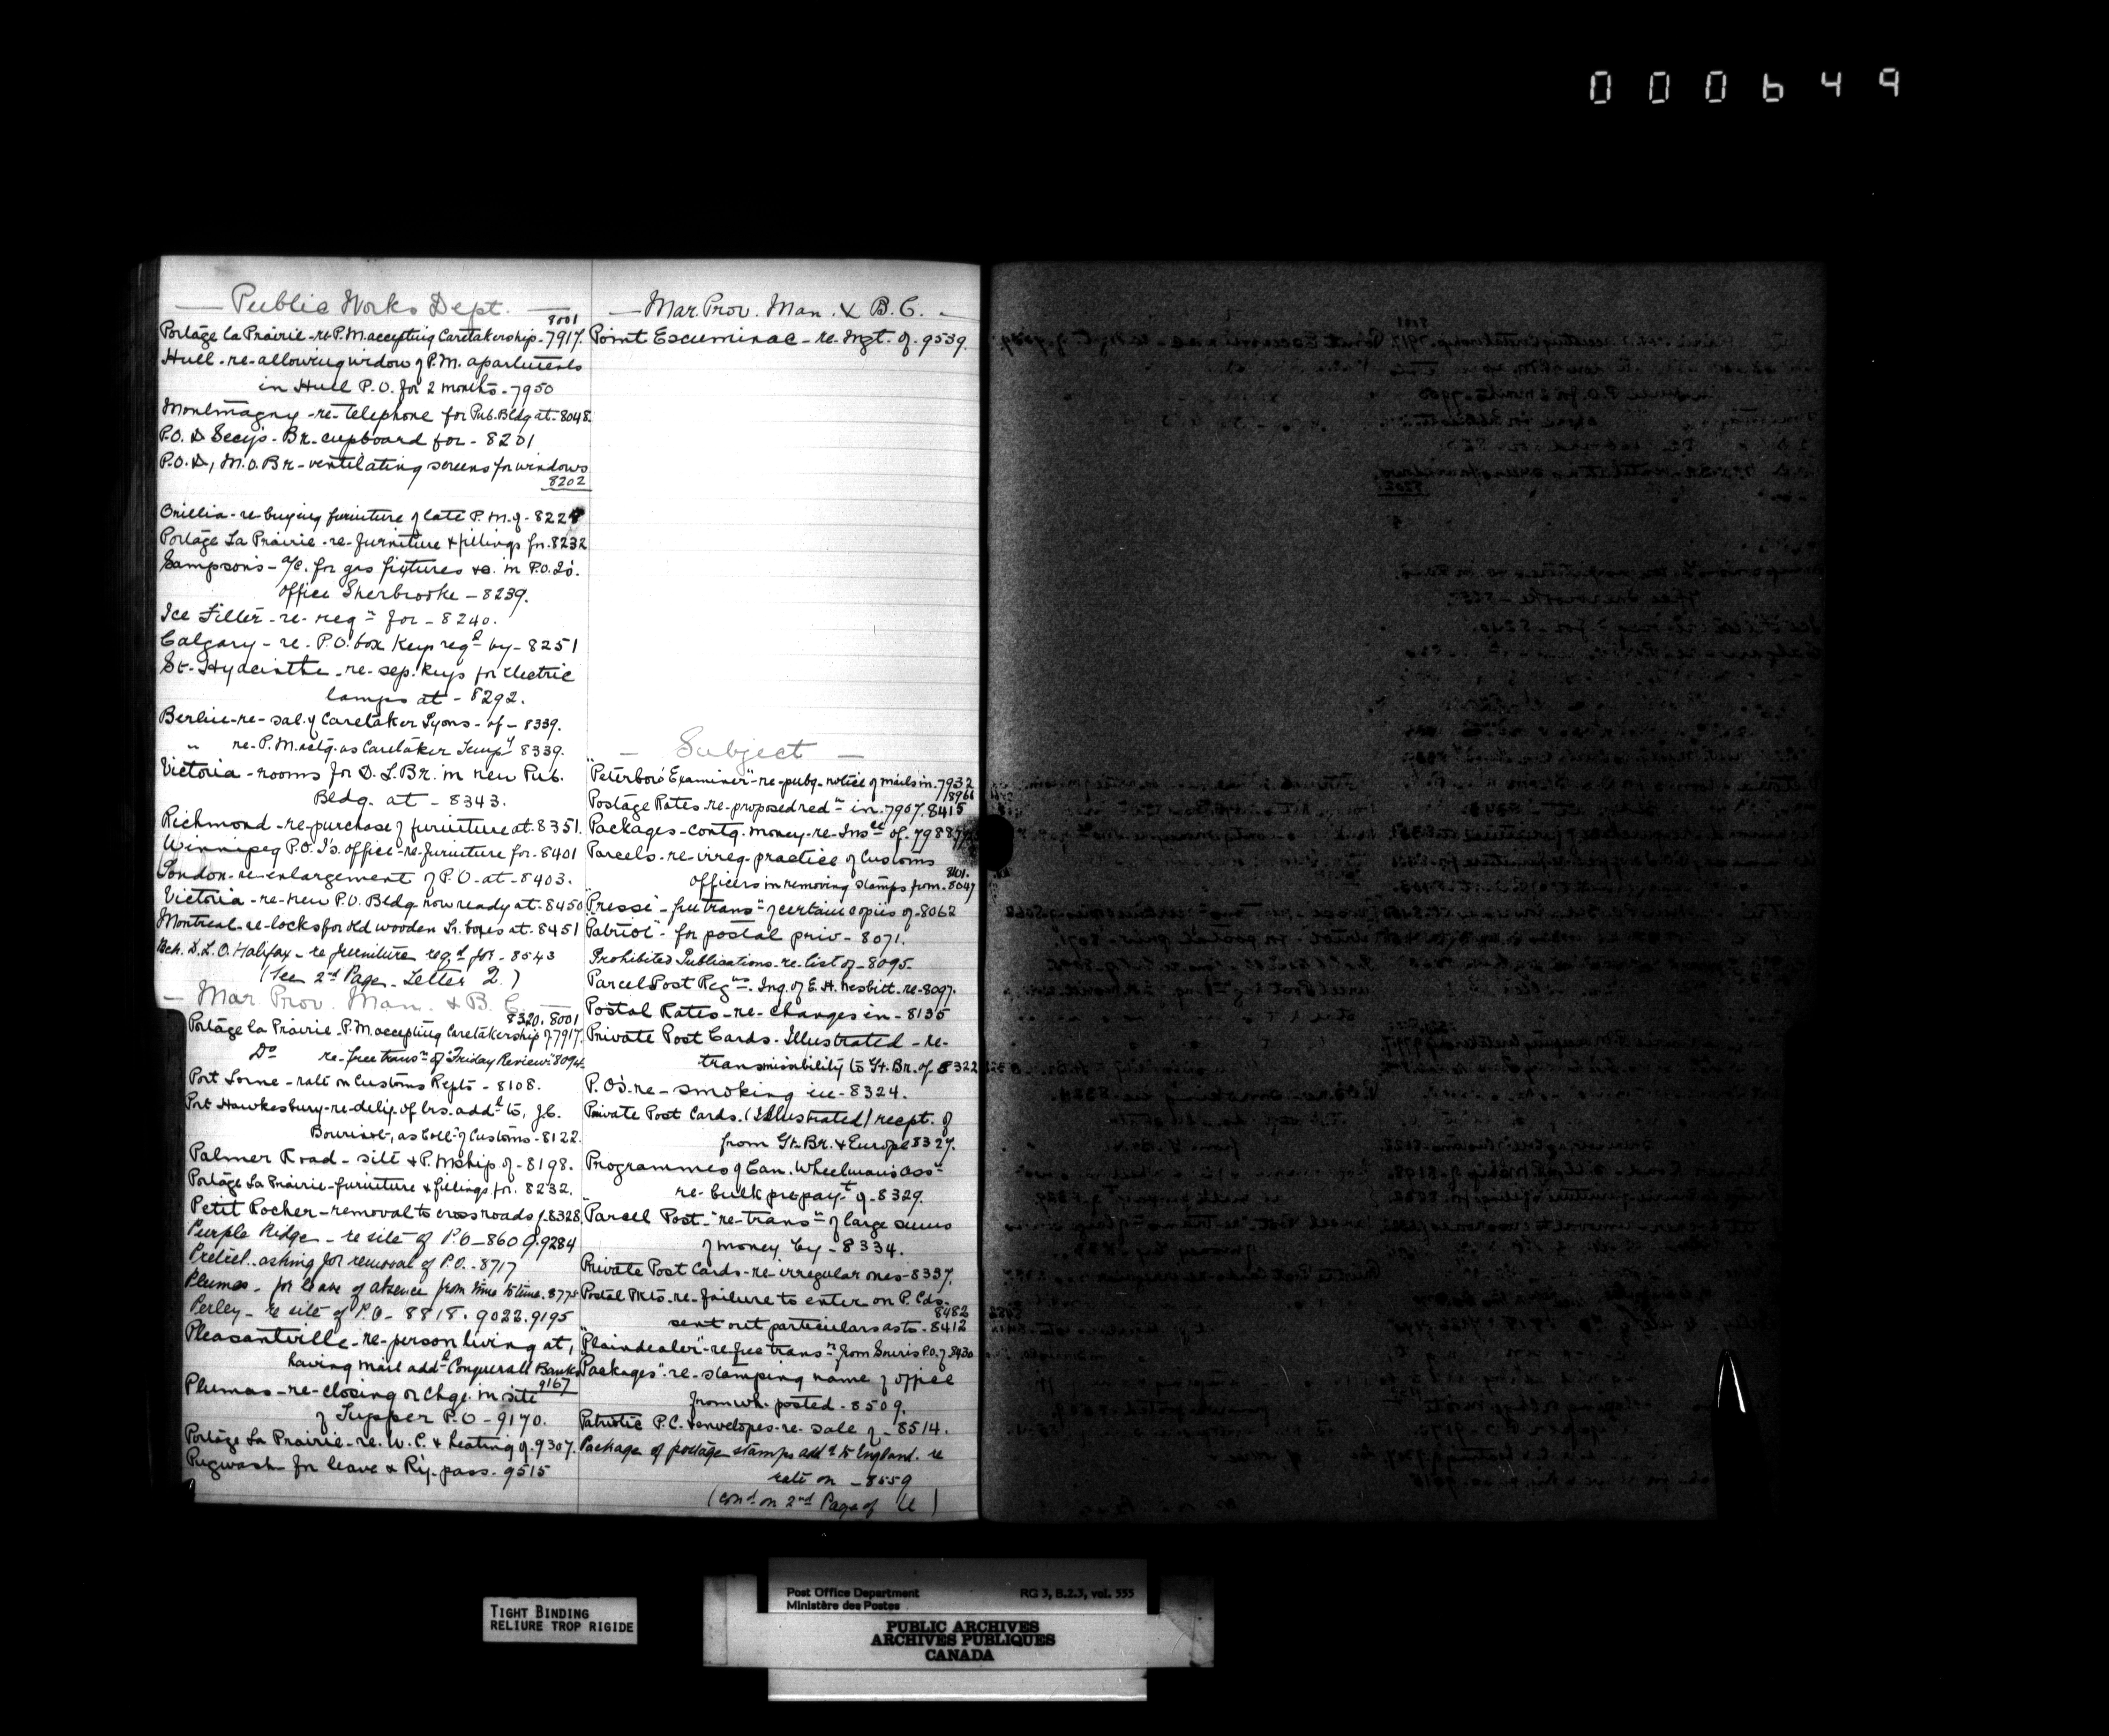 000649
— Public Works Dept. —
8001
Portage la Prairie - re P.M. accepting Caretakership - 7917.
Hull - re - allowing widow of P.M. apartments
in Hull P.O. for 2 months - 7950
Montmagny - re - telephone for Pub. Bldg at - 8048.
P.O. D Secy's - Br - cupboard for - 8201
P.O. D, M.O. Br - ventilating screens for windows
8202
Orillia - re - buying furniture of late P.M. of - 822
Portage La Prairie - re - furniture & fittings for. 8232
Sampson's - a/c. for gas fixtures &c. in P.O. Is.
office Sherbrooke - 8239.
Ice Filter - re - reqn for - 8240.
Calgary - re - P.O. box keys reqd by - 8251
St. Hyacinthe - re - sep. keys for Electric
lamps at - 8292.
Berlin - re - sal. of Caretaker Lyons - of - 8339.
" re - P.M. actg. as Caretaker Tempy 8339.
Victoria - rooms for D.L. Br. in new Pub.
Bldg. at - 8343.
Richmond - re - purchase of furniture at. 8351.
Winnipeg P.O. I's. office - re - furniture for - 8401
London - re - enlargement of P.O. at - 8403.
Victoria - re - new P.O. Bldg. now ready at - 8450
Montreal - re - locks for old wooden Lr. boxes at - 8451
Bch. D.L.O. Halifax - re furniture reqd for - 8543
(See 2nd Page - Letter Q.)
— Mar. Prov. Man. & B. C. —
8320. 8001
Portage la Prairie - P.M. accepting Caretakership of 7917.
Do re - free transn of "Friday Review" 8094.
Port Lorne - rate on Customs Repts - 8108.
Port Hawkesbury - re - deliy. of lrs. addd to, J.C.
Bourinot, as Coll. of Customs - 8122.
Palmer Road - site & P.Mship of - 8198.
Portage La Prairie - furniture & fittings for. 8232.
Petit Rocher - removal to cross roads of. 8328.
Purple Ridge - re site of P.O - 8609. 9284
asking for removal of P.O. - 8717
Plumas - for leave of absence from time to time. 8775
Perley - re site of P.O - 8818. 9022. 9195
Pleasantville - re - person living at,
having mail addd Conquerall Bank
9167
Plumas - re - closing or chge. in site
of Tupper P.O - 9170.
Portage La Prairie - re. W.C. & heating of. 9307.
Pugwash - for leave & Ry. pass. 9515
— Mar. Prov. Man. & B. C. —
Point Escuminac - re. Mgt. of. 9539.
— Subject —
"Peterboro Examiner" - re - pubg. notice of mails in. 7932
8966
Postage Rates - re - proposed redn in. 7907. 8415
Packages - contg. money - re - Insce of. 7988
Parcels - re - irreg. practice of Customs
8101.
officers in removing stamps from. 8047
"Presse" - free transn of certain copies of - 8062
"Patriot" - for postal priv - 8071.
Prohibited Publications - re - list of - 8095.
Parcel Post Regns. Inq. of E.H. Nesbitt - re - 8097.
Postal Rates - re - changes in - 8135
Private Post Cards. Illustrated - re -
transmissibility to Gt. Br. of 8322
P.Os. re - smoking in - 8324.
Private Post Cards. (Illustrated) recpt. of
from Gt. Br. & Europe 8327.
Programmes of Can. Wheelman's Assn
re - bulk prepayt of - 8329.
"Parcel Post" - re - transn of large sums
of money by - 8334.
Private Post Cards - re - irregular ones - 8337.
Postal Pkts - re - failure to enter on P. Cds.
8482
sent out particulars as to. 8412
"Plaindealer" - re free transn from Souris P.O. of 8430
"Packages" re - stamping name of office
from wh. posted - 8509.
Patriotic P.C. & envelopes - re - sale of - 8514.
Package of postage stamps addd to England. re
rate on - 8559
(cond on 2nd Page of U)
TIGHT BINDING
RELIURE TROP RIGIDE
Post Office Department RG 3, B.2.3, vol. 555
Ministère des Postes
PUBLIC ARCHIVES
ARCHIVES PUBLIQUES
CANADA